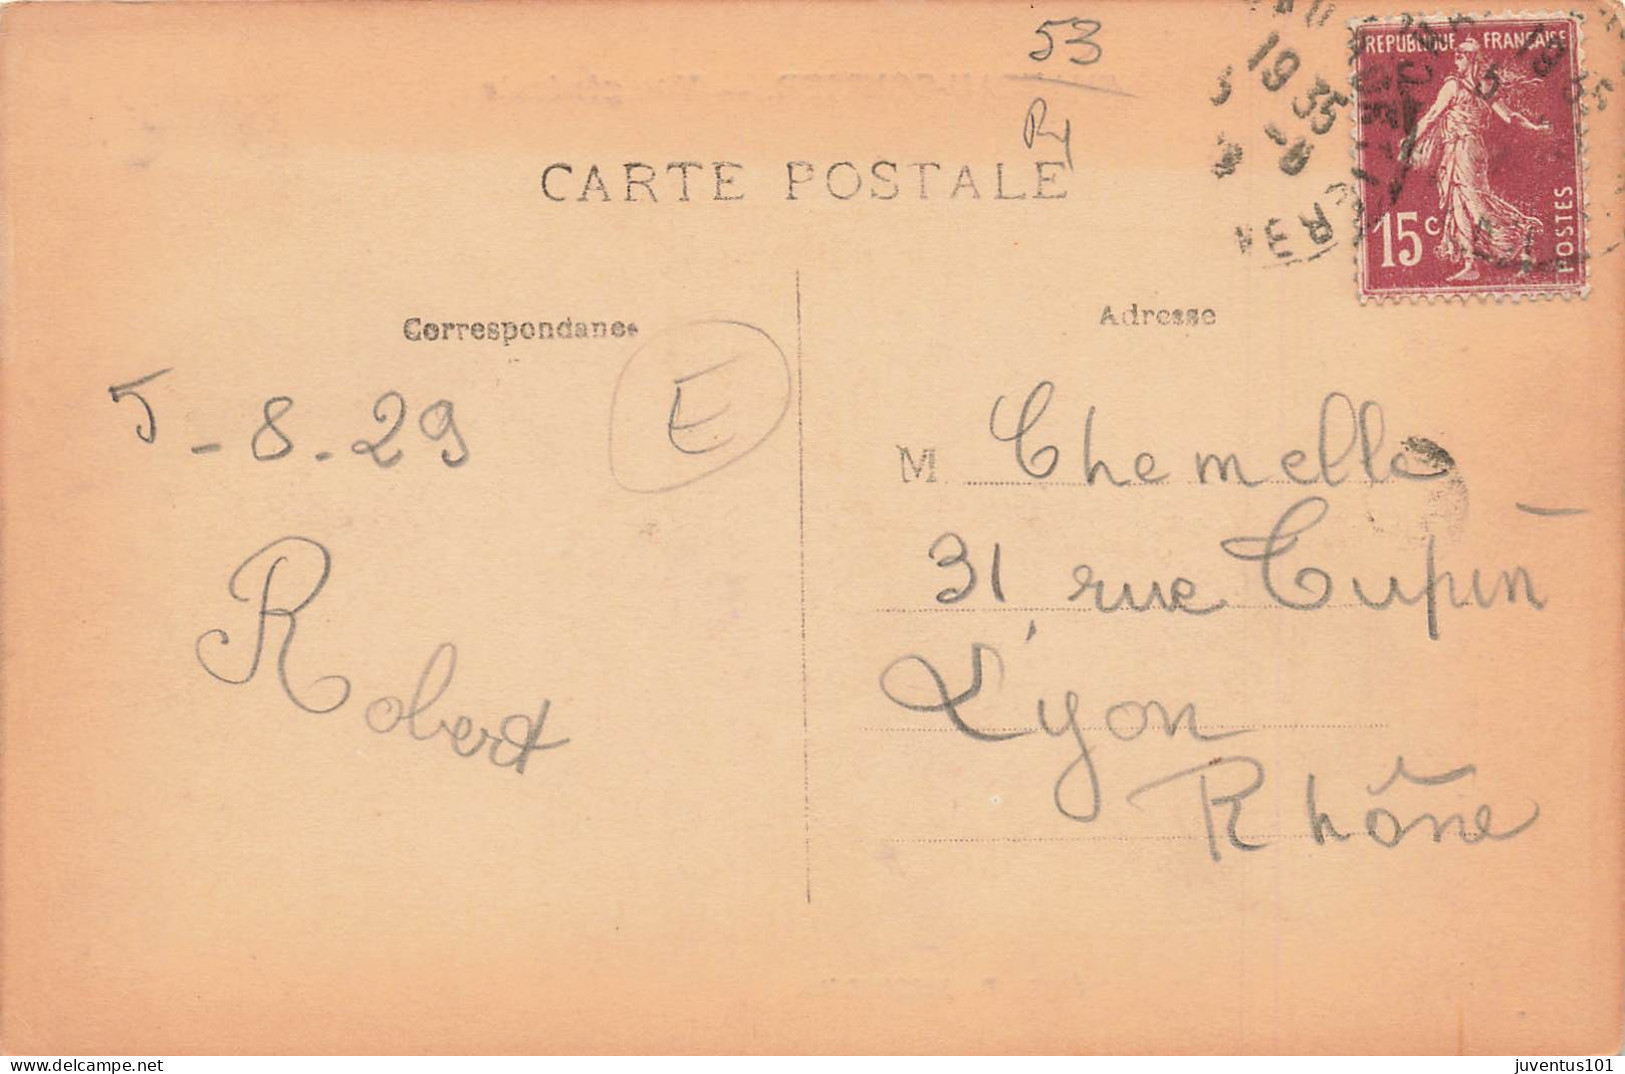 53
CARTE POSTALE
REPUBLIQUE FRANÇAISE
15c
POSTES
19 35
Correspondance
Adresse
5-8.29
E
Robert
M Chemelle
31, rue Tupin
Lyon
Rhône
delcampe.net
juventus101